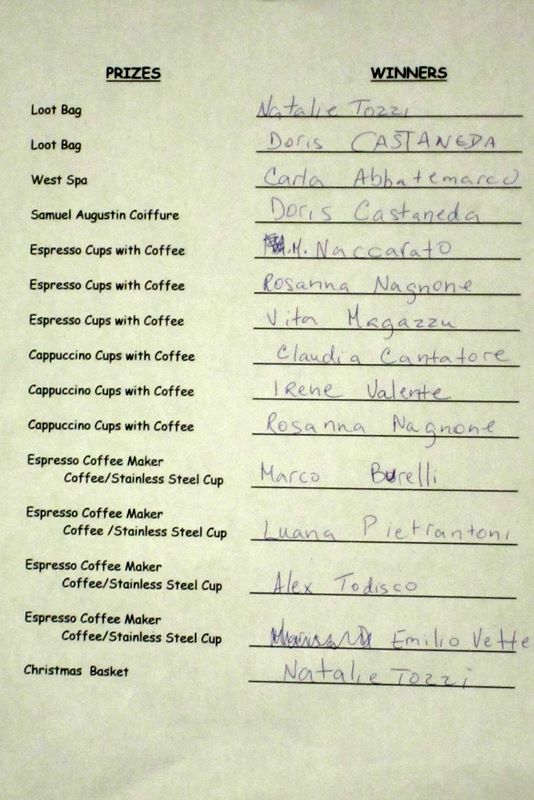 PRIZES WINNERS
Loot Bag Natalie Tozzi
Loot Bag Doris CASTANEDA
West Spa Carla Abbatemarco
Samuel Augustin Coiffure Doris Castaneda
Espresso Cups with Coffee M. Naccarato
Espresso Cups with Coffee Rosanna Nagnone
Espresso Cups with Coffee Vita Magazzu
Cappuccino Cups with Coffee Claudia Cantatore
Cappuccino Cups with Coffee Irene Valente
Cappuccino Cups with Coffee Rosanna Nagnone
Espresso Coffee Maker
Coffee/Stainless Steel Cup Marco Burelli
Espresso Coffee Maker
Coffee /Stainless Steel Cup Luana Pietrantoni
Espresso Coffee Maker
Coffee/Stainless Steel Cup Alex Todisco
Espresso Coffee Maker
Coffee/Stainless Steel Cup Emilio Vette
Christmas Basket Natalie Tozzi